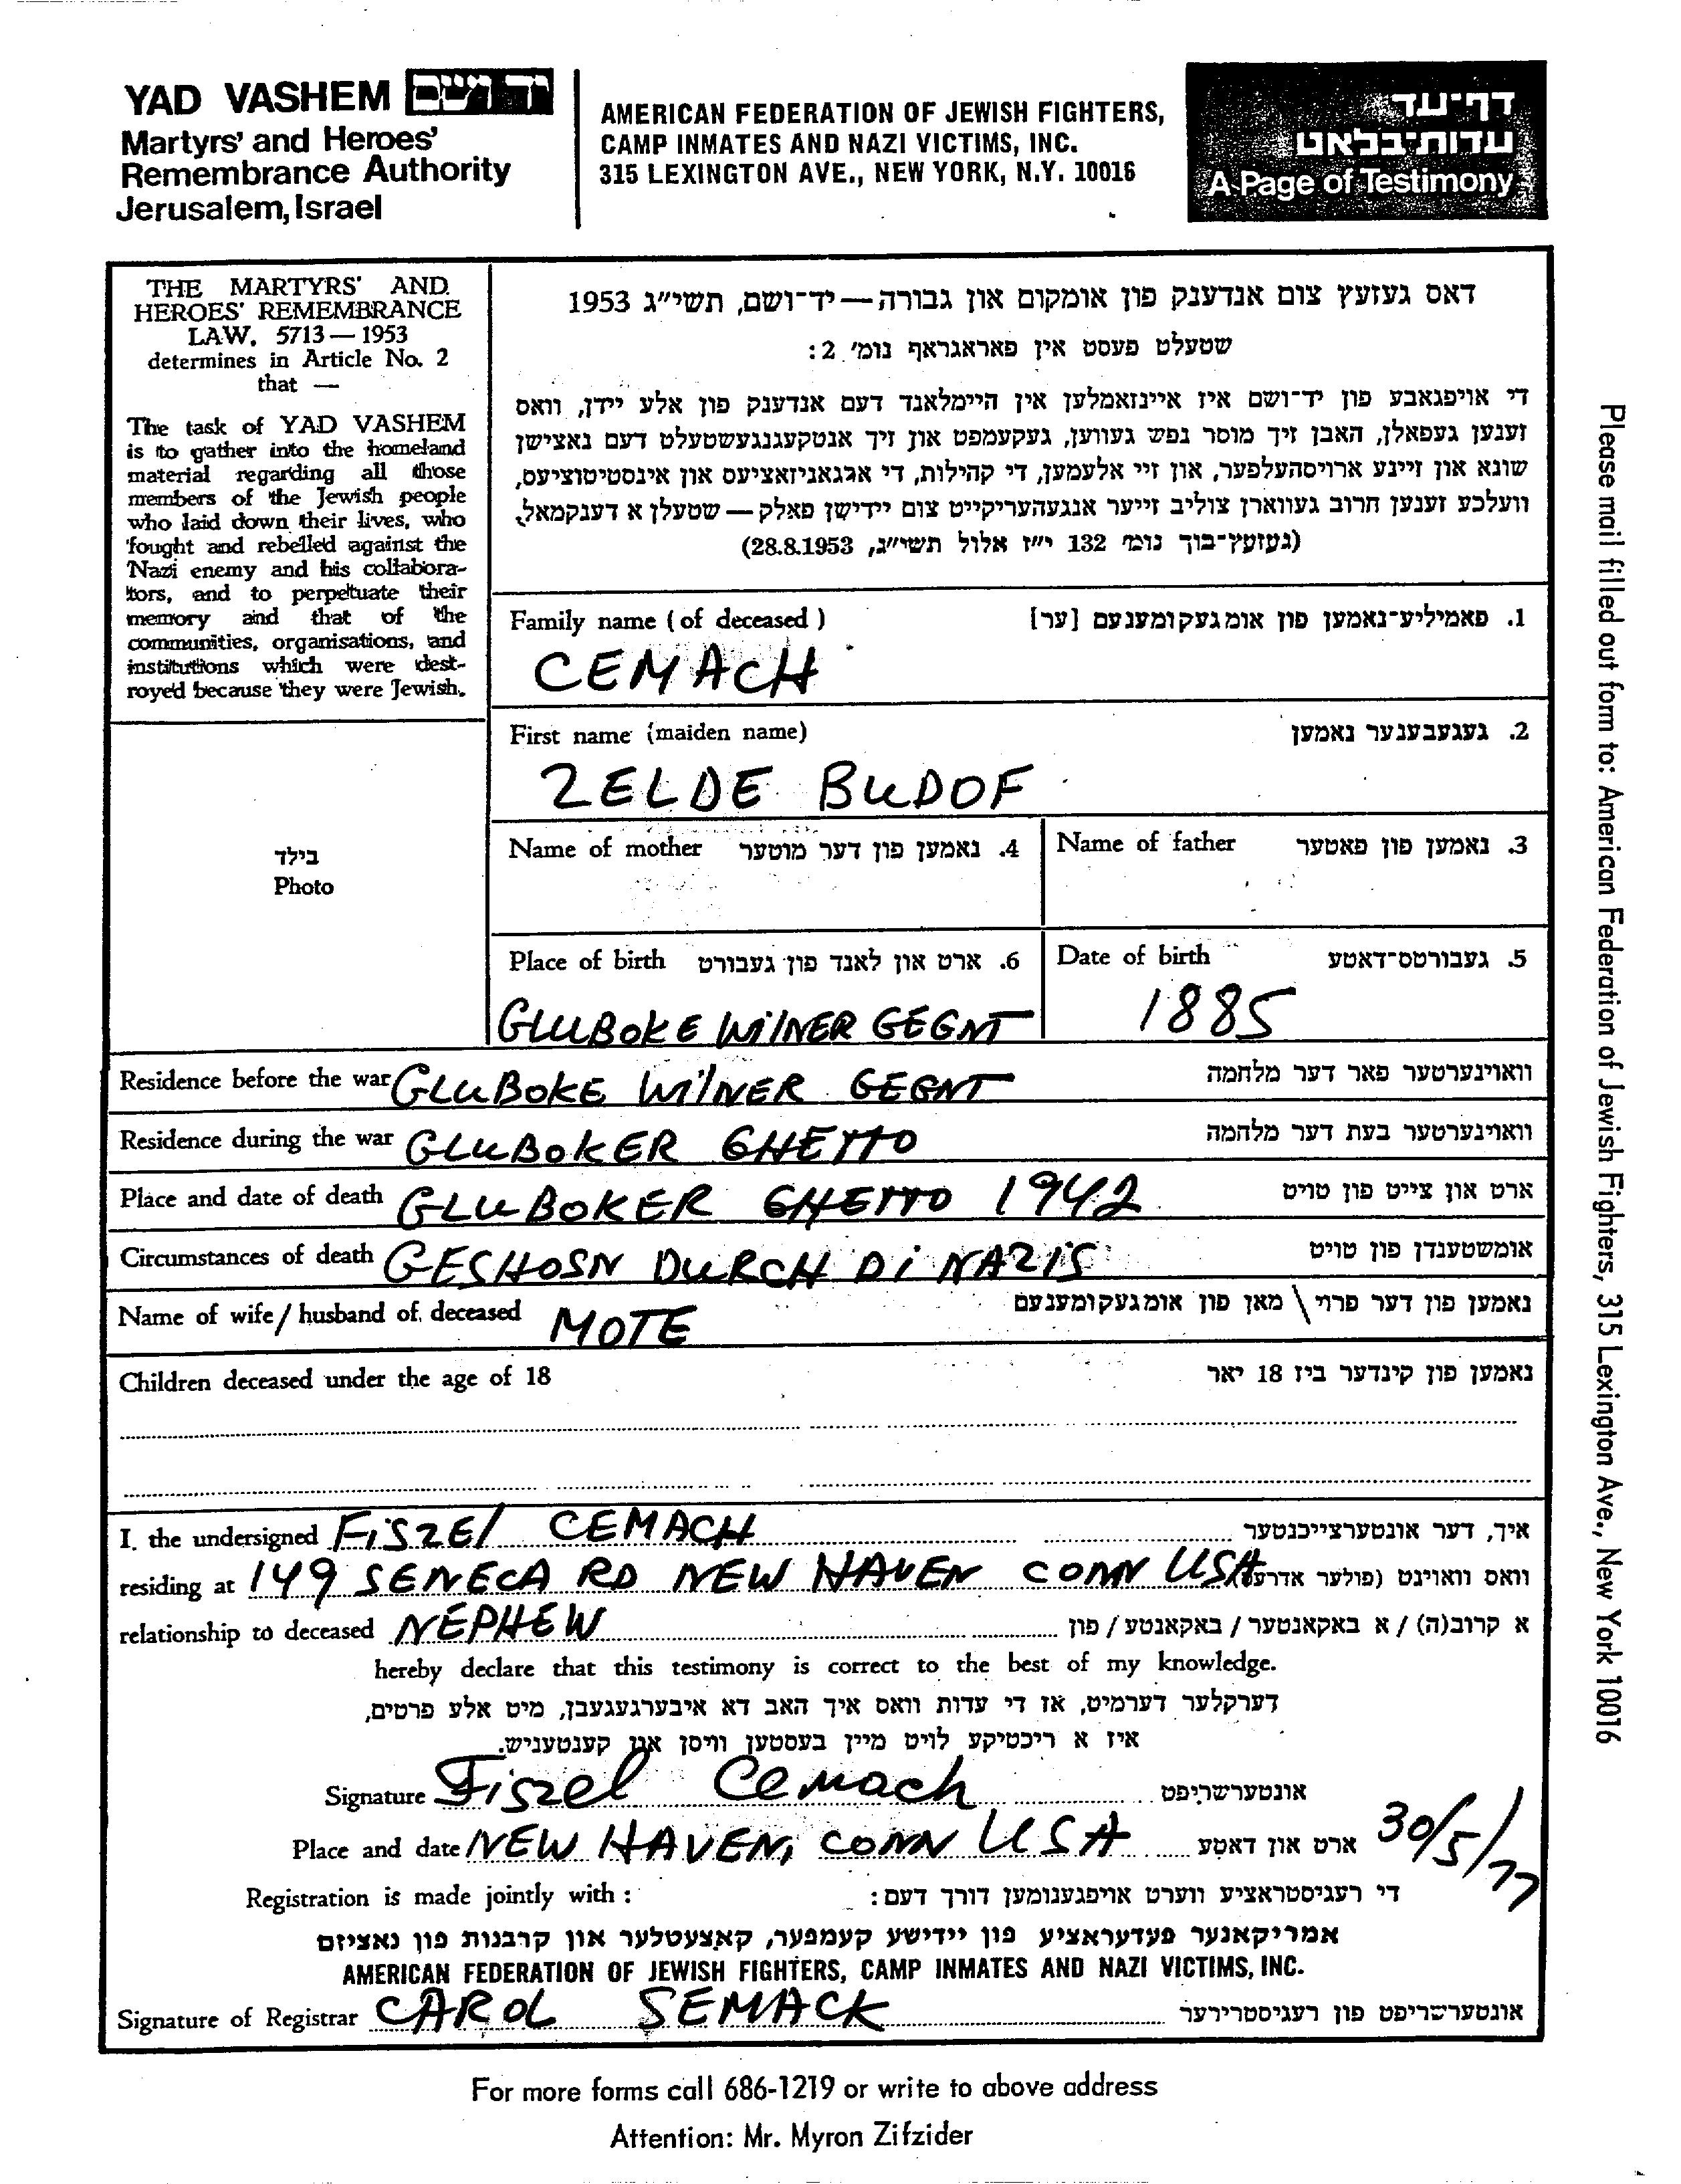 YAD VASHEM יד ושם
Martyrs' and Heroes'
Remembrance Authority
Jerusalem, Israel
AMERICAN FEDERATION OF JEWISH FIGHTERS,
CAMP INMATES AND NAZI VICTIMS, INC.
315 LEXINGTON AVE., NEW YORK, N.Y. 10016
דף-עד
עדות-בלאט
A Page of Testimony
THE MARTYRS' AND
HEROES' REMEMBRANCE
LAW, 5713 — 1953
determines in Article No. 2
that —
The task of YAD VASHEM
is to gather into the homeland
material regarding all those
members of the Jewish people
who laid down their lives, who
fought and rebelled against the
Nazi enemy and his collabora-
tors, and to perpetuate their
memory and that of the
communities, organisations, and
institutions which were dest-
royed because they were Jewish.
דאס געזעץ צום אנדענק פון אומקום און גבורה — יד-ושם, תשי״ג 1953
שטעלט פעסט אין פאראגראף נומ׳ 2:
די אויפגאבע פון יד-ושם איז איינזאמלען אין היימלאנד דעם אנדענק פון אלע יידן, וואס
זענען געפאלן, האבן זיך מוסר נפש געווען, געקעמפט און זיך אנטקעגנגעשטעלט דעם נאצישן
שונא און זיינע ארויסהעלפער, און זיי אלעמען, די קהילות, די ארגאניזאציעס און אינסטיטוציעס,
וועלכע זענען חרוב געווארן צוליב זייער אנגעהעריקייט צום יידישן פאלק — שטעלן א דענקמאל.
(געזעץ-בוך נומ׳ 132 י״ז אלול תשי״ג, 28.8.1953)
Family name (of deceased) 1. פאמיליע-נאמען פון אומגעקומענעם [ער]
CEMACH
First name (maiden name) 2. געגעבענער נאמען
ZELDE BUDOF
Name of mother 4. נאמען פון דער מוטער
Name of father 3. נאמען פון פאטער
בילד
Photo
Place of birth 6. ארט און לאנד פון געבורט
GLUBOKE WILNER GEGNT
Date of birth 5. געבורטס-דאטע
1885
Residence before the war GLUBOKE WILNER GEGNT וואוינערטער פאר דער מלחמה
Residence during the war GLUBOKER GHETTO וואוינערטער בעת דער מלחמה
Place and date of death GLUBOKER GHETTO 1942 ארט און צייט פון טויט
Circumstances of death GESHOSN DURCH DI NAZIS אומשטענדן פון טויט
Name of wife / husband of deceased MOTE נאמען פון דער פרוי \ מאן פון אומגעקומענעם
Children deceased under the age of 18 נאמען פון קינדער ביז 18 יאר
I, the undersigned FISZEL CEMACH איך, דער אונטערצייכנטער
residing at 149 SENECA RD NEW HAVEN CONN USA וואס וואוינט (פולער אדרעס)
relationship to deceased NEPHEW א קרוב(ה) / א באקאנטער / באקאנטע / פון
hereby declare that this testimony is correct to the best of my knowledge.
דערקלער דערמיט, אז די עדות וואס איך האב דא איבערגעגעבן, מיט אלע פרטים,
איז א ריכטיקע לויט מיין בעסטען וויסן און קענטעניש.
Signature Fiszel Cemach אונטערשריפט
Place and date NEW HAVEN, CONN USA ארט און דאטע 30/5/77
Registration is made jointly with : די רעגיסטראציע ווערט אויפגענומען דורך דעם:
אמריקאנער פעדעראציע פון יידישע קעמפער, קאצעטלער און קרבנות פון נאציזם
AMERICAN FEDERATION OF JEWISH FIGHTERS, CAMP INMATES AND NAZI VICTIMS, INC.
Signature of Registrar CAROL SEMACK אונטערשריפט פון רעגיסטרירער
For more forms call 686-1219 or write to above address
Attention: Mr. Myron Zifzider
Please mail filled out form to: American Federation of Jewish Fighters, 315 Lexington Ave., New York 10016